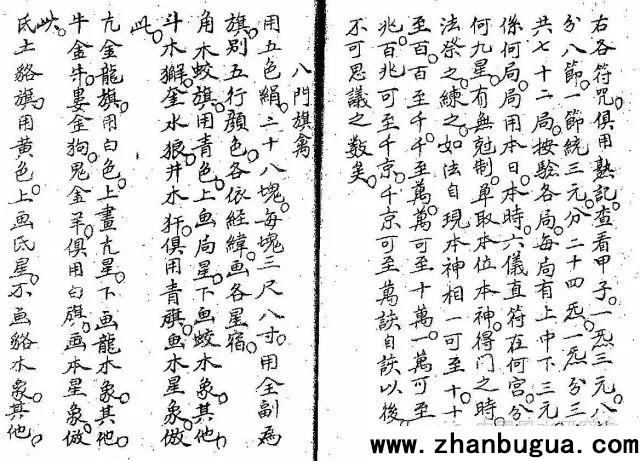 右各符咒俱用熟記。查看甲子一炁三元。八
分八節一節統三元。分二十四炁一炁分三
共七十二局按驗各局。每局有上中下三元
係何局。局用本日本時。六儀直符在何宮分
何九星有無剋制單取本位本神得門之時
法祭之練之如法自現本神相一可至十十
至百百至千千至萬萬可至十萬一萬可至
兆百兆可至千京千京可至萬該自該以後
不可思議之數矣。
八門旗禽
用五色絹二十八塊每塊三尺八寸用全副為
旗別五行顏色各依經緯画各星宿
角木蛟旗用青色上画局星下画蛟木象其他
斗木獬奎水狼井木犴俱用青旗鱼木星象倣
此
亢金龍旗用白色上畫亢星下画龍水象其他
牛金牛婁金狗鬼金羊俱用白旗画本星象倣
此
氐土貉旗用黃色上画氐星不画貉水象其他
www.zhanbugua.com